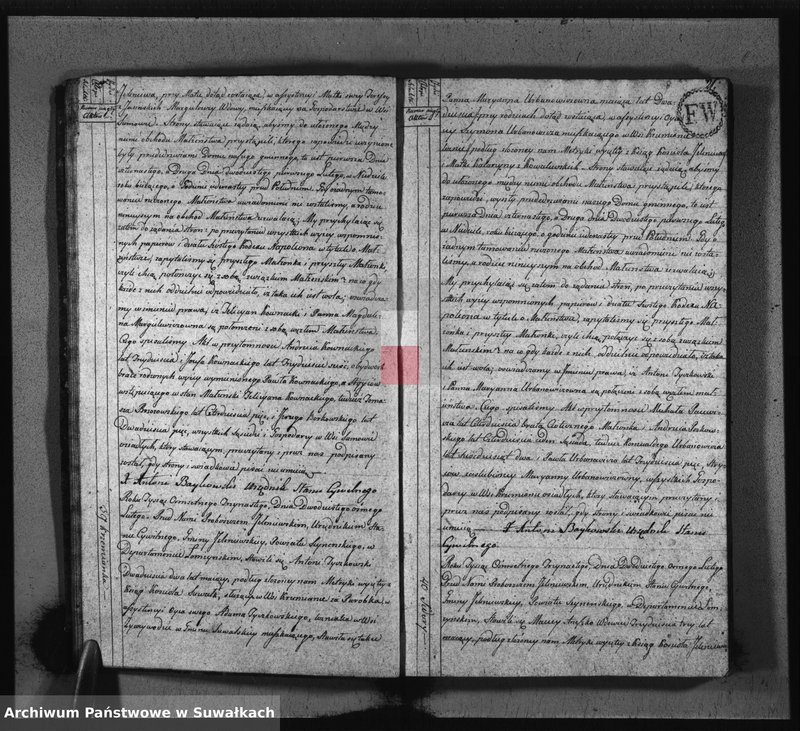 Jeleniewa, przy Matce dotąd zostaiącey, w assystencyi Matki swey
z Jasińskich Margielewey Wdowy, mieszkaiący na Gospodarstwie w Wsi
Strony stawaiące żądaią, abyśmy do ułożonego między
niemi obchodu Małżeństwa przystąpili, którego zapowiedzi uczynione
były przededrzwiami Domu naszego gminnego, to iest pierwsza Dnia
czternastego, a Druga Dnia dwudziestego pierwszego Lutego, w Niedziele
roku bieżącego, o Godzinie iedenastey przed Południem. Gdy o żadnym tamo-
waniu rzeczonego Małżeństwa uwiadomieni nie zostaliśmy, a rodzice
ninieyszym na obchod Małżeństwa zezwalaią; My przychylaiąc się
zatem do żądania stron: po przeczytaniu wszystkich wyżey wspomnio-
nych papierow i działu szostego Kodexu Napoleona w tytule o Mał-
żeństwie, zapytaliśmy się przyszłego Małżonka i przyszłey Małżonki,
czyli chcą połączyć się z sobą związkiem Małżeńskim? na co gdy
każde z nich oddzielnie odpowiedziało, iż taka ich iest wola; ogłaszamy
w imieniu prawa, iż Felicyan Kownacki i Panna Magdale-
na Margielewiczowna są połączeni z sobą węzłem Małżeństwa.
Czego spisaliśmy Akt w przytomności Andrzeia Kownackiego
lat Trzydziestu i Jozefa Kownackiego lat Trzydziestu sześć, obydwóch
braci rodzonych wyżey wymienionego Kownackiego, a Stryiów
wstępuiącego w stan Małżeński Felicyana Kownackiego, tudzież Toma-
sza Brozowskiego lat Czterdziestu pięć, i Jerzego Borkowskiego lat
Dwadziestu pięć, wszystkich sąsiedzi i Gospodarzy w Wsi
osiadłych, który stawaiącym przeczytany i przez nas podpisany
został, gdy strony i świadkowie pisać nie umieią
X Antoni Baykowski Urzędnik Stanu Cywilnego
Roku Tysiąc Ośmsetnego Trzynastego, Dnia Dwudziestego osmego
Lutego. Przed Nami Proboszczem Jeleniewskim, Urzędnikiem Sta-
nu Cywilnego, Gminy Jeleniewskiey, Powiatu Seyneńskiego, w
Departamencie Łomżyńskim, Stawili się Antoni Tyszkowski
Dwadziestu dwa lat maiący, podług złożoney nam Metryki wyiętey z
Ksiąg Kościoła Suwałk, służący w Wsi Krzemianie za Parobka, w
assystencyi Oyca swego Adama Tyszkowskiego, w Wsi
Żywawodzie w Gminie Suwalskiey mieszkaiącego, Stawiła się także
37 Krzemianka.
Panna Maryanna Urbanowiczowna maiąca lat Dwa-
dziescia przy rodzicach dotąd zostaiąca, w assystencyi Oyca
Szymona Urbanowicza mieszkaiącego w Wsi Krzemianie
podług złożoney nam Metryki wyiętey z Ksiąg Kościoła Jeleniewa
i Matki Katarzyny z Kowalewskich. Strony stawaiące żądaią, abyśmy
do ułożonego między niemi obchodu Małżeństwa przystąpili, którego
zapowiedzi, wyszły przededrzwiami naszego Domu gminnego, to iest
pierwsza Dnia czternastego, a druga Dnia Dwudziestego pierwszego Lutego
w Niedziele, roku bieżącego, o godzinie iedenastey przed Południem. Gdy o
żadnym tamowaniu rzeczonego Małżeństwa uwiadomieni nie zosta-
liśmy, a rodzice ninieyszym na obchod Małżeństwa zezwalaią;
My przychylaiąc się zatem do żądania stron, po przeczytaniu wszy-
stkich wyżey wspomnionych, papierow i działu szostego Kodexu Na-
poleona w tytule o Małżeństwie, zapytaliśmy się przyszłego Mał-
żonka i przyszłey Małżonki, czyli chcą połączyć się z sobą związkiem
Małżeńskim? na co gdy każde z nich, oddzielnie odpowiedziało, iż taka
ich iest wola, ogłaszamy w Imieniu prawa, iż Antoni Tyszkowski
i Panna Maryanna Urbanowiczowna są połączeni z sobą węzłem mał-
żeństwa. Czego spisaliśmy Akt w przytomności Michała
lat Czterdziestu brata Małżonka i Andrzeia
lat Czterdziestu ieden Sąsiada, tudzież Urbanowicza
lat sześćdziesiąt dwa i Pawła Urbanowicza lat Trzydziestu pięć, Stry-
iow zaślubioney Maryanny Urbanowiczowny, wszystkich Gospo-
darzy w Wsi Krzemianie osiadłych, który Stawaiącym przeczytany i
przez nas podpisany został, gdy strony i świadkowie pisać nie
umieią X Antoni Baykowski Urzędnik Stanu
Cywilnego.
Roku Tysiąc Ośmsetnego Trzynastego, Dnia Dwudziestego Osmego Lutego
Przed Nami Proboszczem Jeleniewskim, Urzędnikiem Stanu Cywilnego,
Gminy Jeleniewskiey, Powiatu Seyneńskiego, w Departamencie Łom-
żyńskim, Stawił się Maciey Wdowiec Trzydziestu trzy lat
maiący, podług złożoney nam Metryki wyiętey z Ksiąg Kościoła Jeleniewa
FW
Archiwum Państwowe w Suwałkach